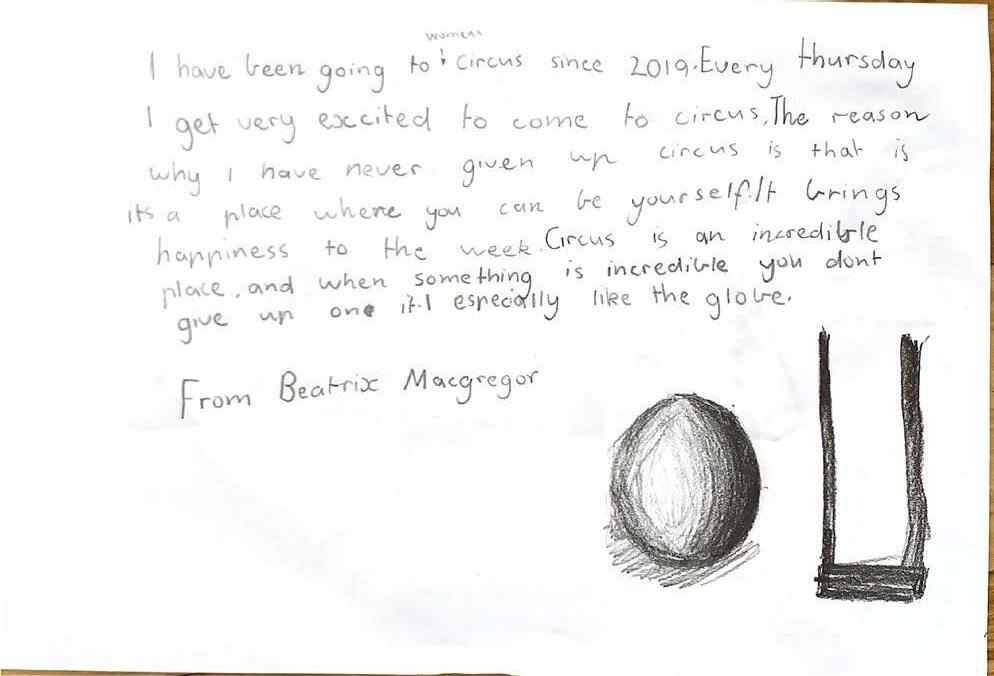 I have been going to womens Circus since 2019. Every thursday
I get very excited to come to circus, The reason
why I have never given up circus is that is
its a place where you can be yourself. It brings
happiness to the week. Circus is an incredible
place, and when something is incredible you dont
give up one it. I especially like the globe.
From Beatrix Macgregor